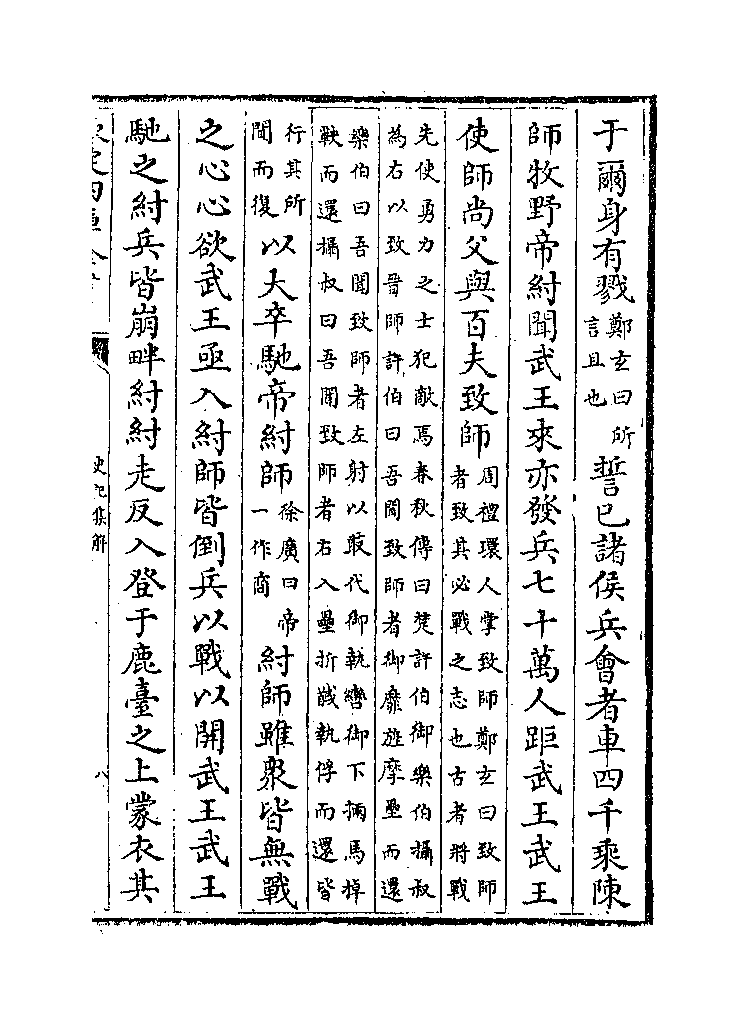 于爾身有戮鄭玄曰所言且也誓已諸侯兵會者車四千乘陳
師牧野帝紂聞武王來亦發兵七十萬人距武王武王
使師尚父與百夫致師周禮環人掌致師鄭玄曰致師者致其必戰之志也古者將戰
先使勇力之士犯敵焉春秋傳曰楚許伯御樂伯攝叔
為右以致晉師許伯曰吾聞致師者御靡旌摩壘而還
樂伯曰吾聞致師者左射以菆代御執轡御下掚馬掉
鞅而還攝叔曰吾聞致師者右入壘折馘執俘而還皆
行其所聞而復以大卒馳帝紂師徐廣曰帝一作商紂師雖衆皆無戰
之心心欲武王亟入紂師皆倒兵以戰以開武王武王
馳之紂兵皆崩畔紂紂走反入登于鹿臺之上蒙衣其
史記集解
八